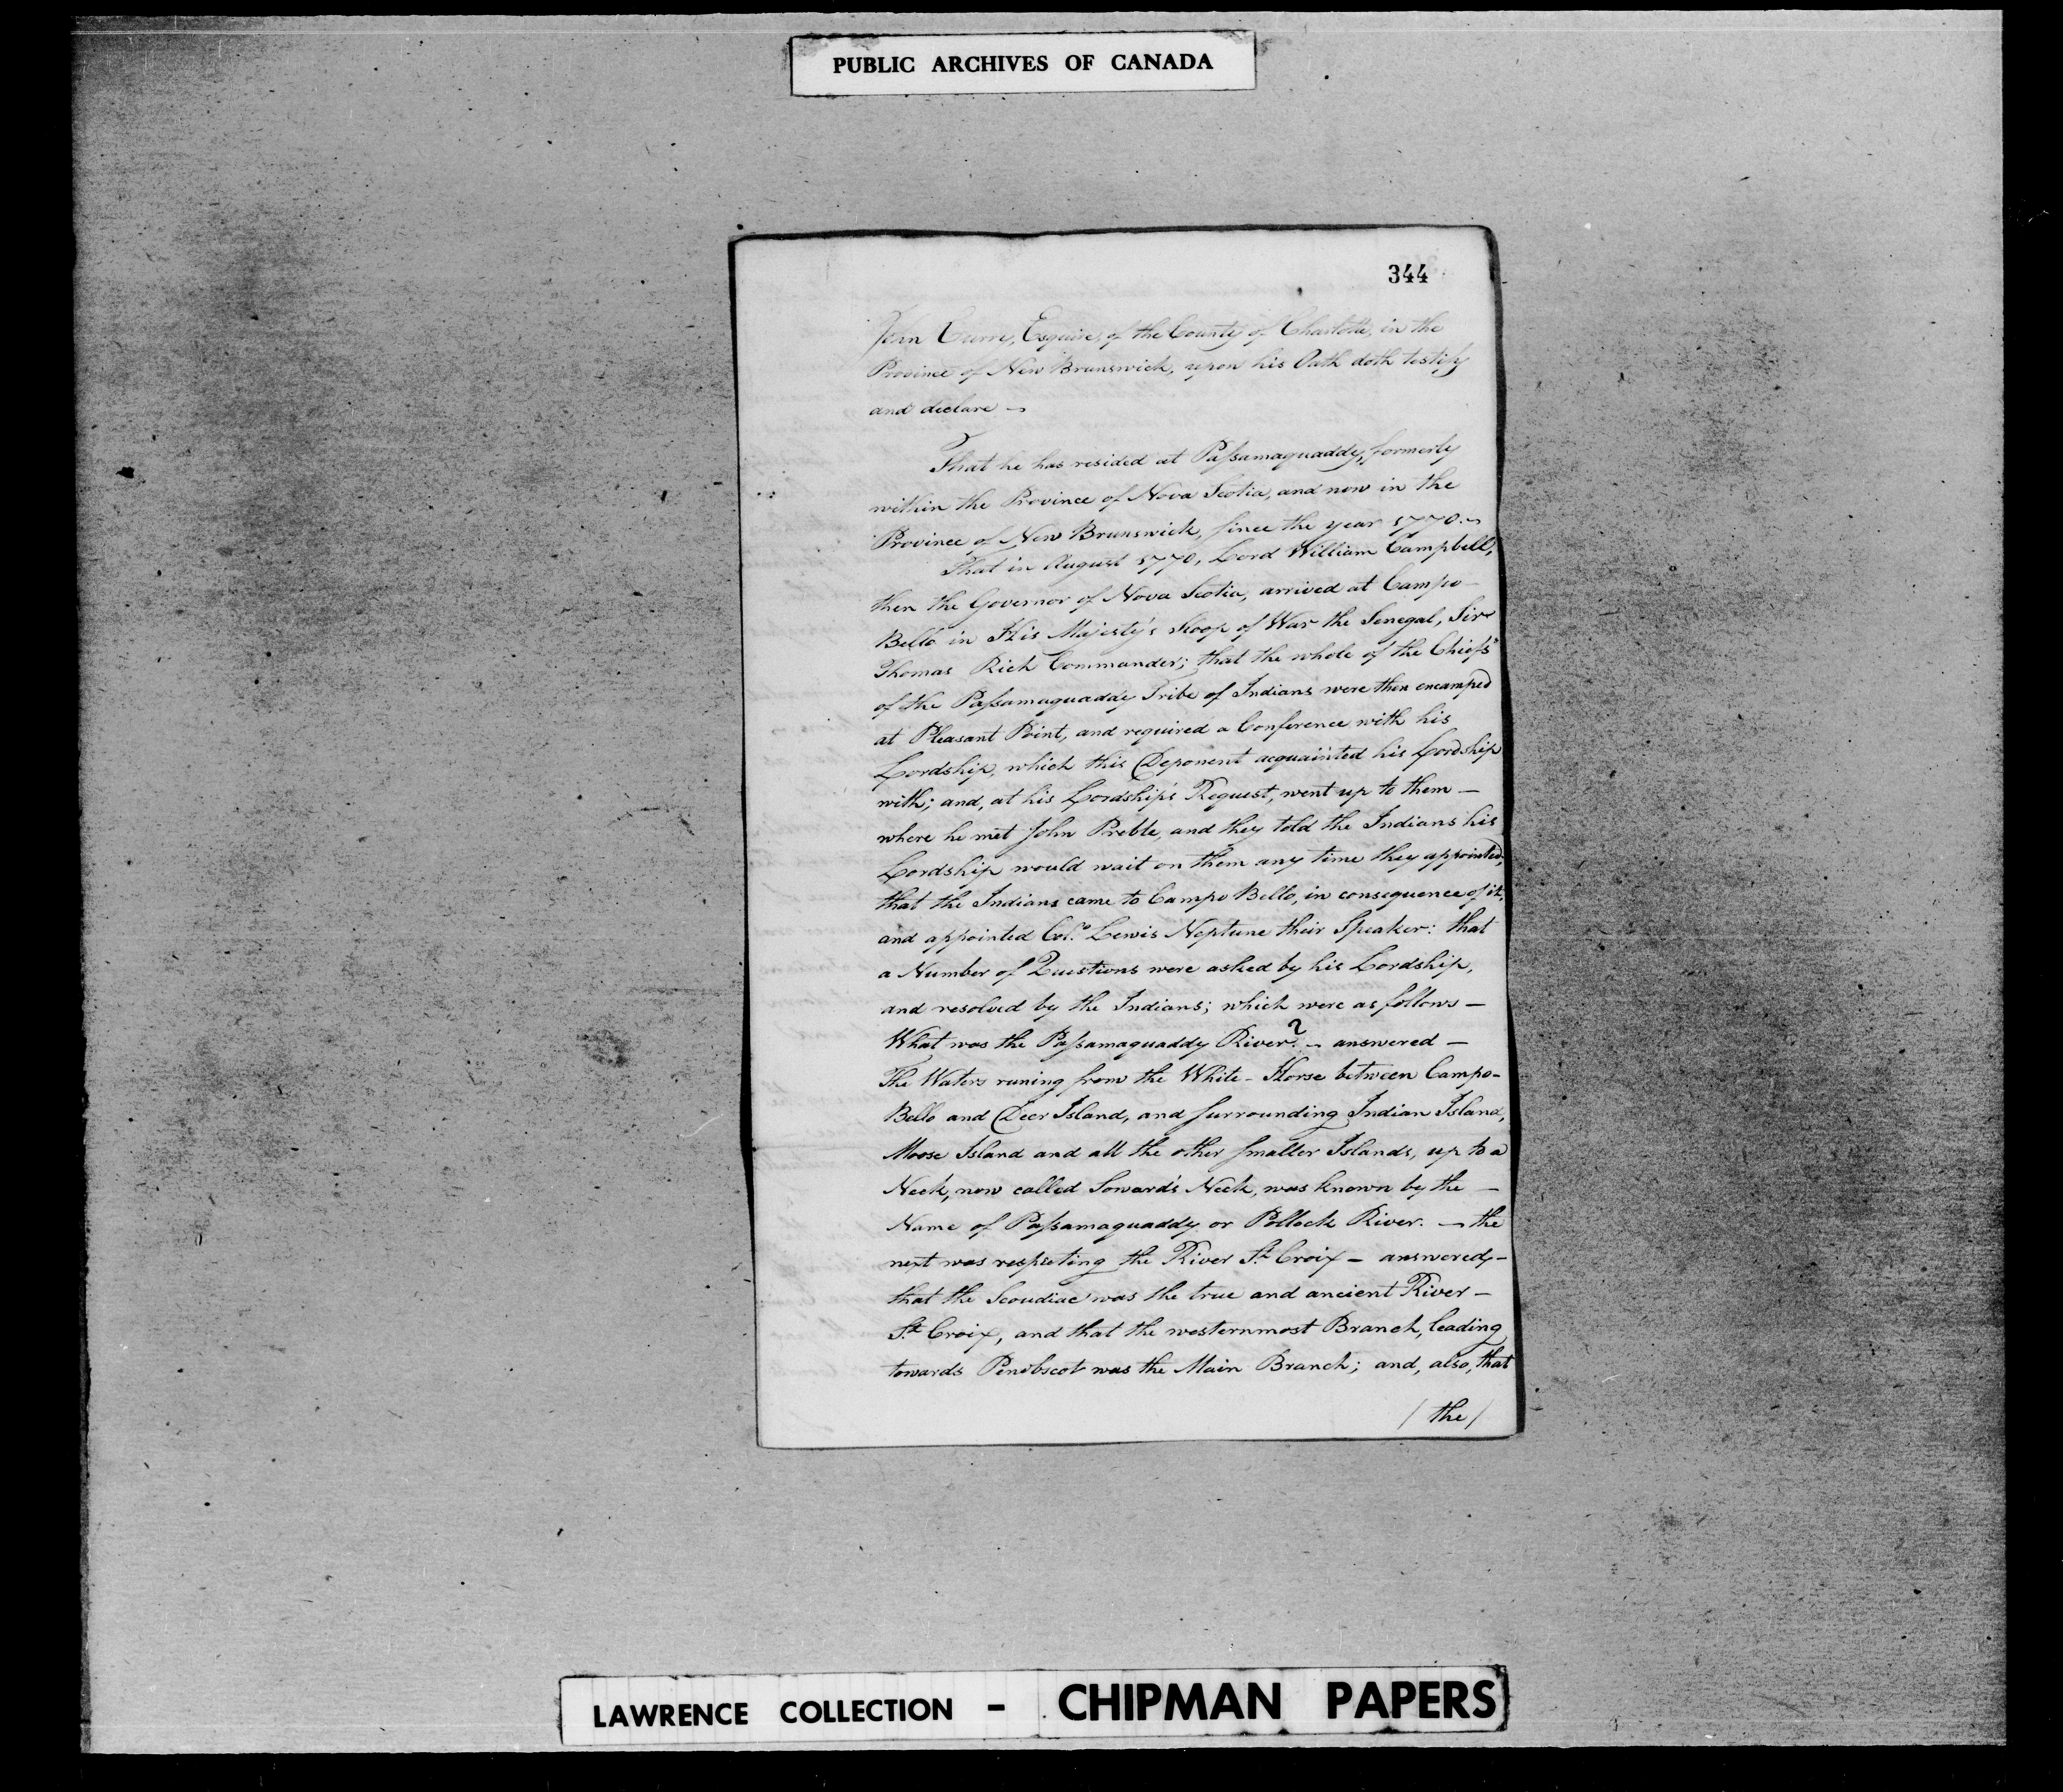 PUBLIC ARCHIVES OF CANADA
344
John Curry, Esquire, of the County of Charlotte, in the
Province of New Brunswick, upon his Oath doth testify
and declare —
That he has resided at Paſsamaquaddy, formerly
within the Province of Nova Scotia, and now in the
Province of New Brunswick, since the year 1770. —
That in August 1770, Lord William Campbell,
then the Governor of Nova Scotia, arrived at Campo-
Bello in His Majesty's Sloop of War the Senegal, Sir
Thomas Rich Commander; that the whole of the Chiefs
of the Paſsamaquaddy Tribe of Indians were then encamped
at Pleasant Point, and required a Conference with his
Lordship, which this Deponent acquainted his Lordship
with; and, at his Lordship's Request, went up to them —
where he met John Preble, and they told the Indians his
Lordship would wait on them any time they appointed,
that the Indians came to Campo Bello, in consequence of it,
and appointed Col.o Lewis Neptune their Speaker: that
a Number of Questions were asked by his Lordship,
and resolved by the Indians; which were as follows —
What was the Paſsamaquaddy River? — answered —
The Waters runing from the White-Horse between Campo-
Bello and Deer Island, and surrounding Indian Island,
Moose Island and all the other smaller Islands, up to a
Neck, now called Soward's Neck, was known by the —
Name of Paſsamaquaddy or Pollock River. — the
next was respecting the River St. Croix — answered, —
that the Scoudiac was the true and ancient River —
St. Croix, and that the westernmost Branch, leading
towards Penobscot was the Main Branch; and, also, that
/ the /
LAWRENCE COLLECTION - CHIPMAN PAPERS